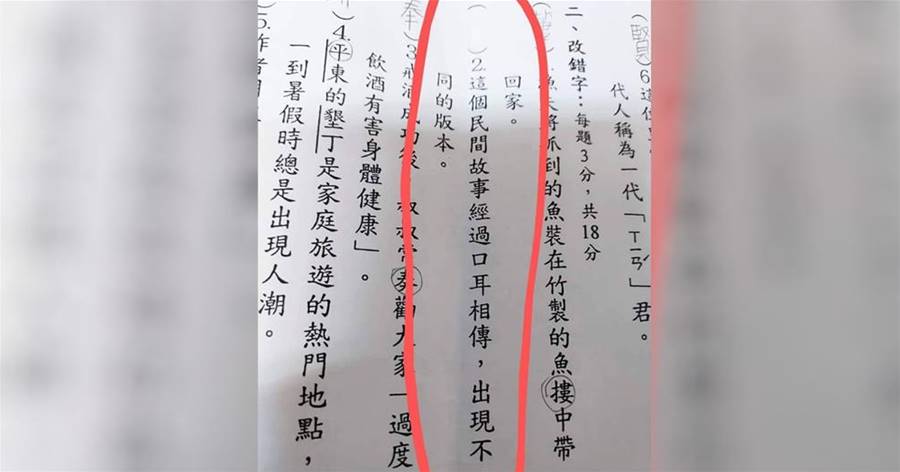 (賢)6.這位
代人稱為一代「ㄒㄧㄢˊ」君。
二、改錯字：每題3分，共18分
漁夫將抓到的魚裝在竹製的魚摟中帶
回家。
( )2.這個民間故事經過口耳相傳，出現不
同的版本。
(奉)3.戒酒成功後，叔叔常奏勸大家「過度
飲酒有害身體健康」。
)4.平東的墾丁是家庭旅遊的熱門地點，
一到暑假時總是出現人潮。
)5.作者